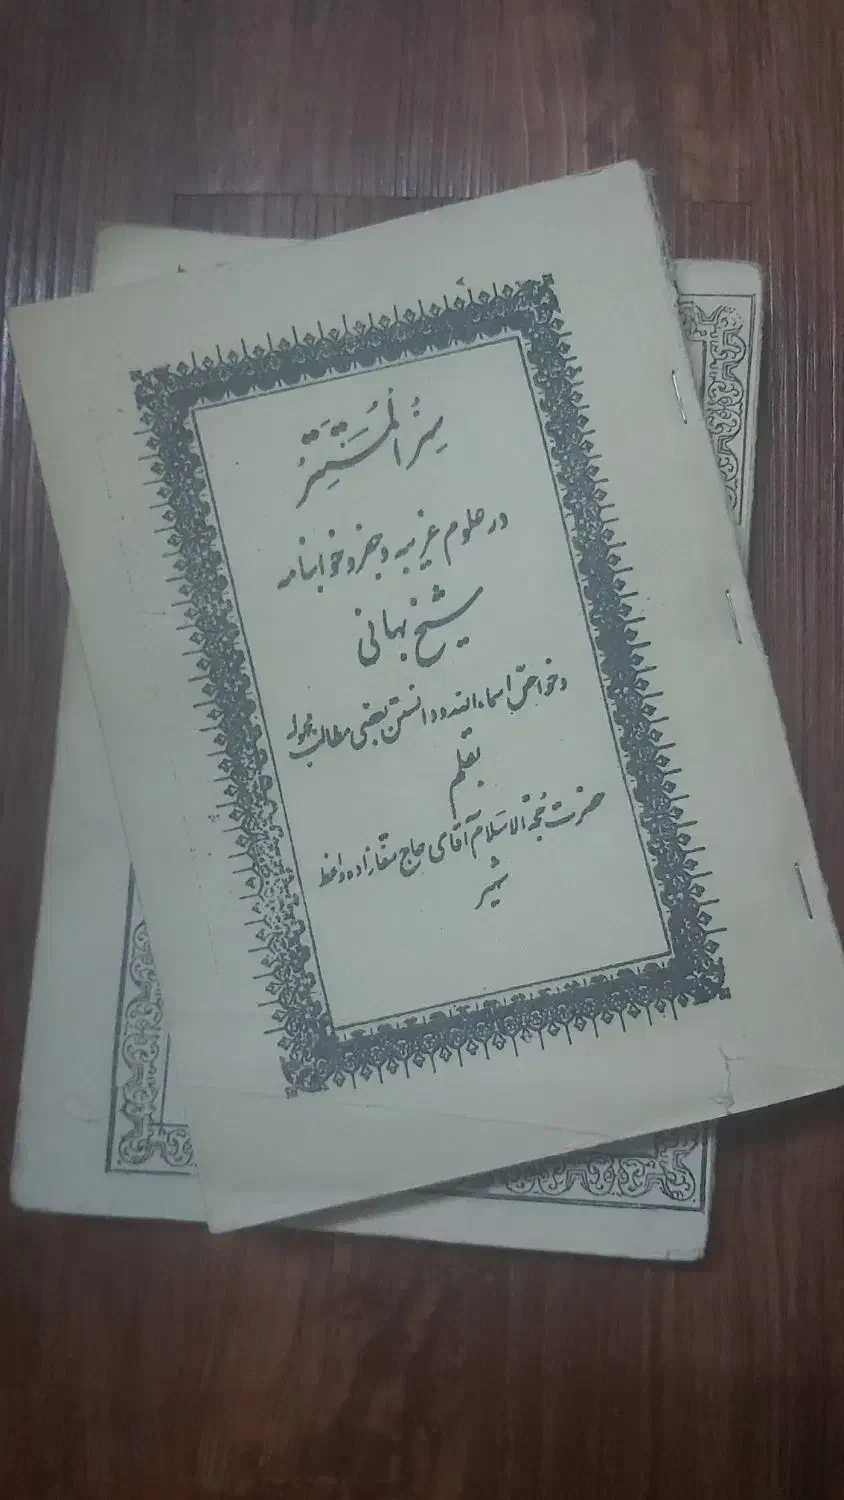 سِرُّ الْمُسْتَتِرْ
در علوم غریبه و جفر و خوابنامه
شیخ بهائی
و خواص اسماء الله و دانستن بعضی مطالب مجهوله
بقلم
حضرت حجة الاسلام آقای حاج سقازاده واعظ
شهیر